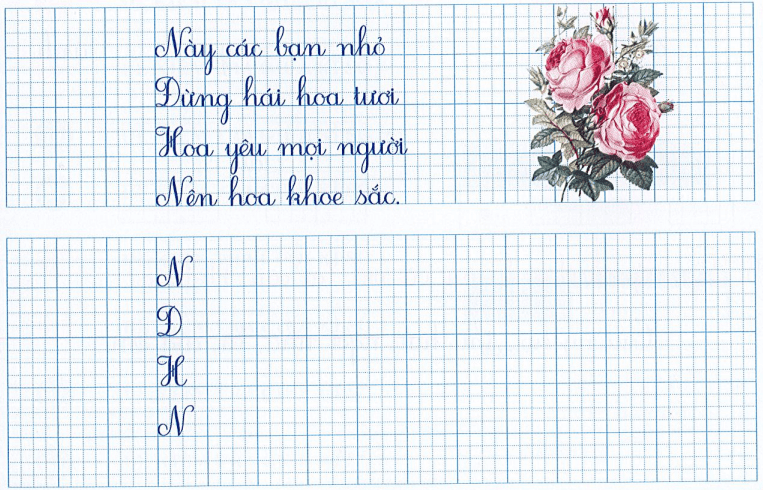 Này các bạn nhỏ
Đừng hái hoa tươi
Hoa yêu mọi người
Nên hoa khoe sắc.
N
Đ
H
N